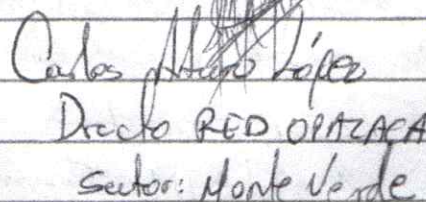 Carlos Arturo López
Directo RED OPALACA
Sector: Monte Verde